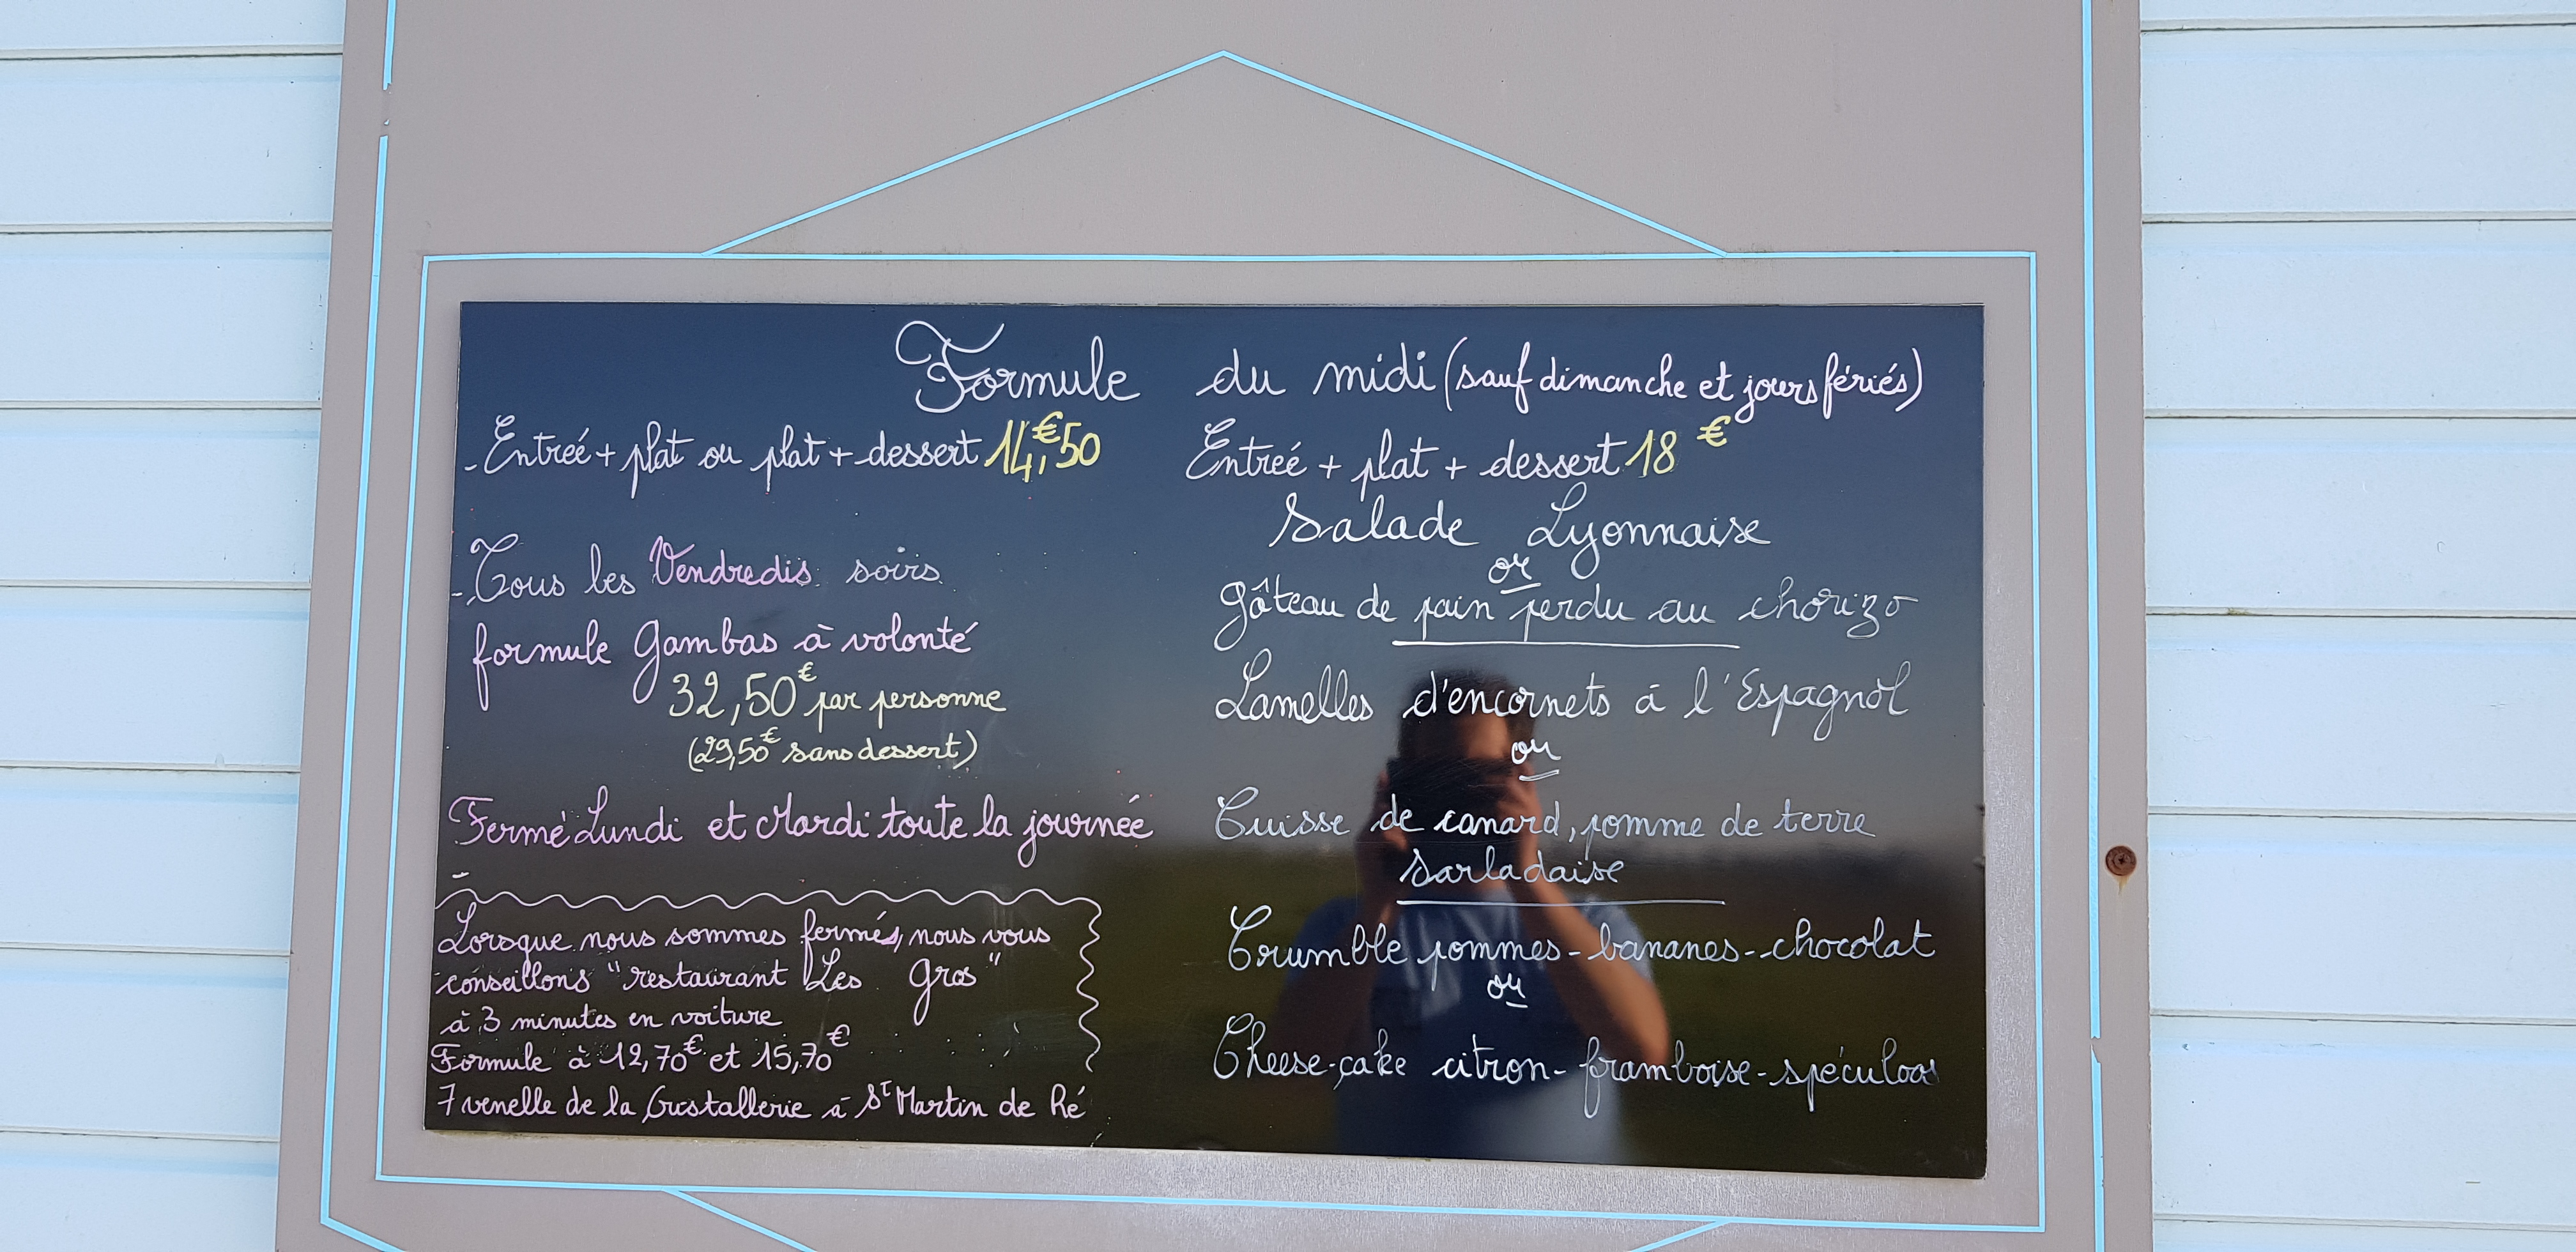 Formule du midi (sauf dimanche et jours fériés)
- Entreé + plat ou plat + dessert 14,€50
Entreé + plat + dessert 18 €
- Tous les Vendredis soirs
formule Gambas à volonté
32,50€ par personne
(29,50€ sans dessert)
Fermé Lundi et Mardi toute la journée
Lorsque nous sommes fermés, nous vous
conseillons "restaurant Les gros"
à 3 minutes en voiture
Formule à 12,70€ et 15,70€
7 venelle de la Cristallerie à St Martin de Ré
Salade Lyonnaise
ou
gâteau de pain perdu au chorizo
Lamelles d'encornets à l'Espagnol
ou
Cuisse de canard, pomme de terre
Sarladaise
Crumble pommes - bananes - chocolat
ou
Cheese-cake citron - framboise - spéculoos